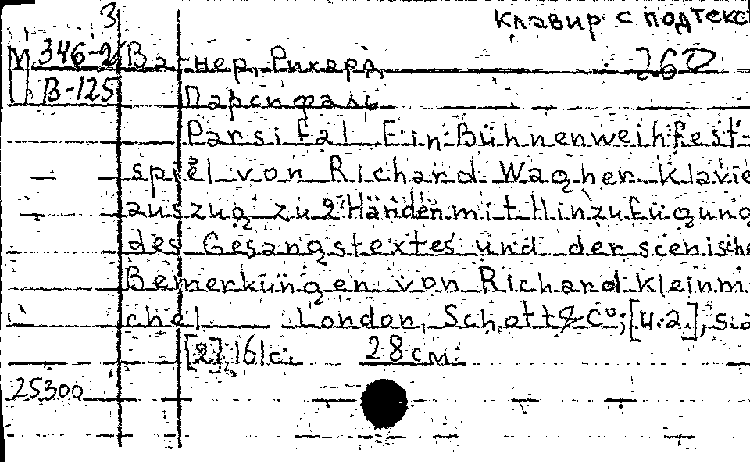 3
Клавир с подтекс
М 346-2 Вагнер, Рихард,
260
В-125 Парсифаль
Parsifal Ein Bühnenweihfest
spiel von Richard Wagner Klavie
auszug zu 2 Händen mit Hinzufügung
des Gesangstextes und der scenische
Bemerkungen von Richard Kleinmi
chel London, Schott & C°; [u.a.], s.a
[2], 161c. 28 см.
25300